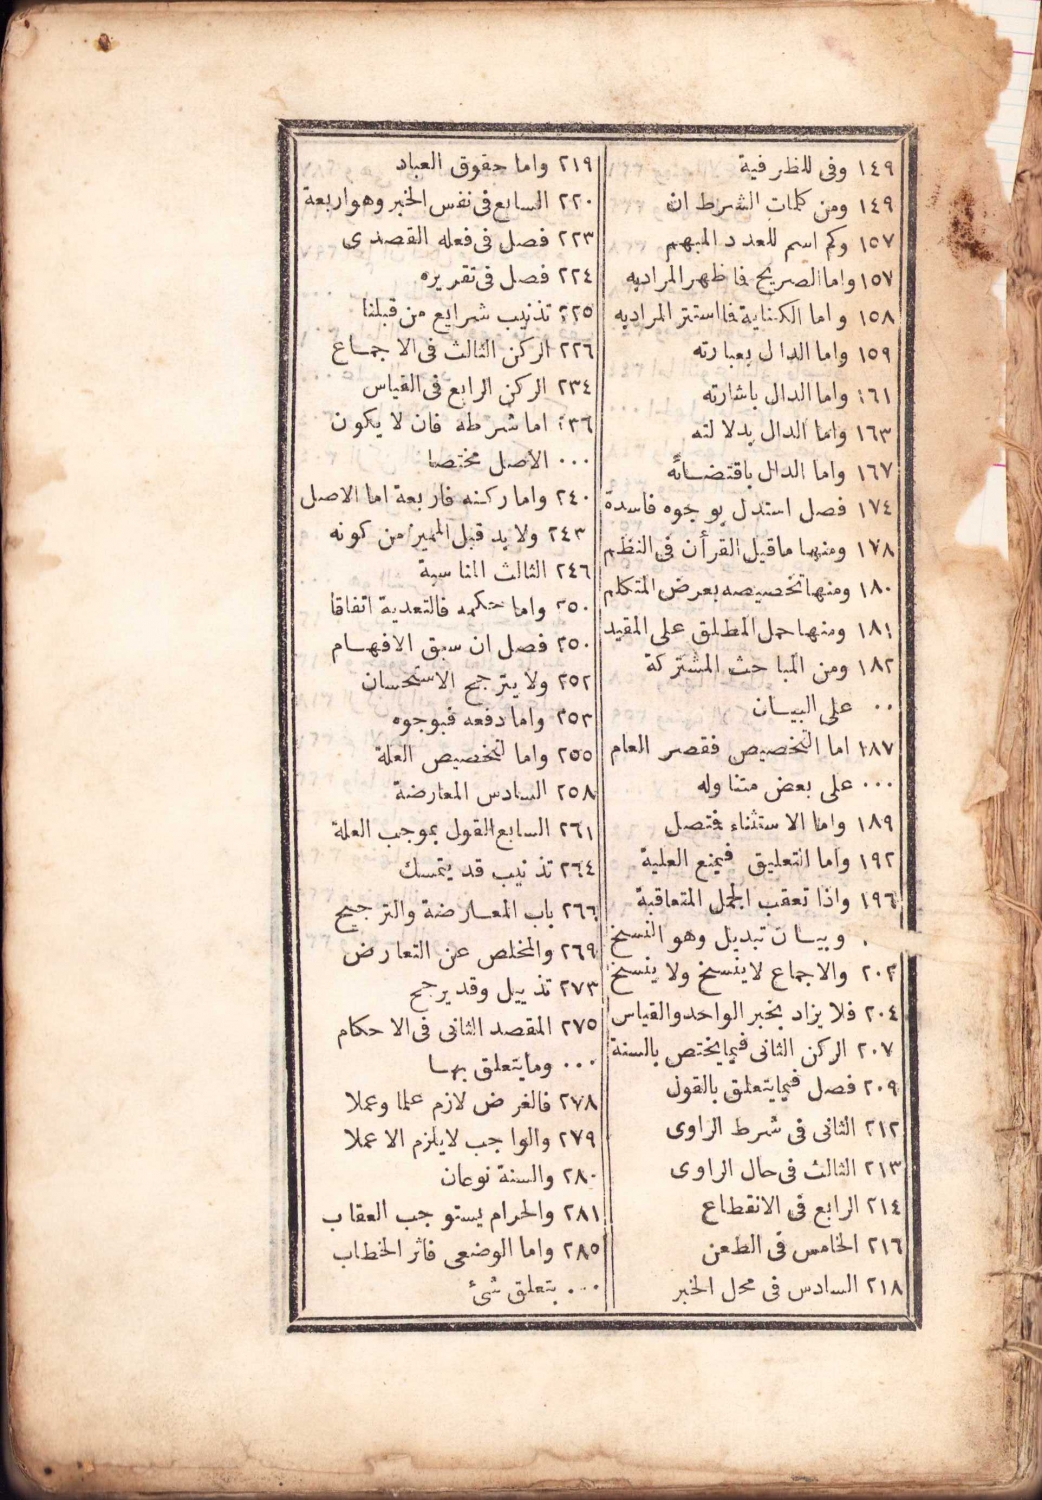 ١٤٩ وفى للظرفية
١٤٩ ومن كلمات الشرط ان
١٥٧ وكم اسم للعدد المبهم
١٥٧ واما الصريح فما ظهر المراد به
١٥٨ واما الكناية فما استتر المراد به
١٥٩ واما الدال بعبارته
١٦١ واما الدال باشارته
١٦٣ واما الدال بدلالته
١٦٧ واما الدال باقتضائه
١٧٤ فصل استدل بوجوه فاسدة
١٧٨ ومنها ما قيل القرأن فى النظم
١٨٠ ومنها تخصيصه بغرض المتكلم
١٨١ ومنها حمل المطلق على المقيد
١٨٢ ومن المباحث المشتركة
٠٠ على البيان
١٨٧ اما التخصيص فقصر العام
٠٠٠ على بعض متناوله
١٨٩ واما الاستثناء فمتصل
١٩٢ واما التعليق فيمنع العلية
١٩٦ واذا تعقب الجمل المتعاقبة
٠ وبيان تبديل وهو النسخ
٢٠٢ والاجماع لاينسخ ولا ينسخ
٢٠٤ فلا يزاد بخبر الواحد والقياس
٢٠٧ الركن الثانى فيما يختص بالسنة
٢٠٩ فصل فيما يتعلق بالقول
٢١٢ الثانى فى شرط الراوى
٢١٣ الثالث فى حال الراوى
٢١٤ الرابع فى الانقطاع
٢١٦ الخامس فى الطعن
٢١٨ السادس فى محل الخبر
٢١٩ واما حقوق العباد
٢٢٠ السابع فى نفس الخبر وهو اربعة
٢٢٣ فصل فى فعله القصدى
٢٢٤ فصل فى تقريره
٢٢٥ تذنيب شرايع من قبلنا
٢٢٦ الركن الثالث فى الاجماع
٢٣٤ الركن الرابع فى القياس
٢٣٦ اما شرطه فان لا يكون
٠٠٠ الاصل مختصا
٢٤٠ واما ركنه فاربعة اما الاصل
٢٤٣ ولا بد قبل المميز من كونه
٢٤٦ الثالث المناسبة
٢٥٠ واما حكمه فالتعدية اتفاقا
٢٥٠ فصل ان سبق الافهام
٢٥٢ ولا يترجح الاستحسان
٢٥٣ واما دفعه فبوجوه
٢٥٥ واما تخصيص العلة
٢٥٨ السادس المعارضة
٢٦١ السابع القول بموجب العلة
٢٦٤ تذنيب قد يتمسك
٢٦٦ باب المعارضة والترجيح
٢٦٩ والمخلص عن التعارض
٢٧٣ تذييل وقد يرجح
٢٧٥ المقصد الثانى فى الاحكام
٠٠٠ وما يتعلق بها
٢٧٨ فالفرض لازم علما وعملا
٢٧٩ والواجب لايلزم الا عملا
٢٨٠ والسنة نوعان
٢٨١ والحرام يستوجب العقاب
٢٨٥ واما الوضعى فاثر الخطاب
٠٠٠ بتعلق شئ